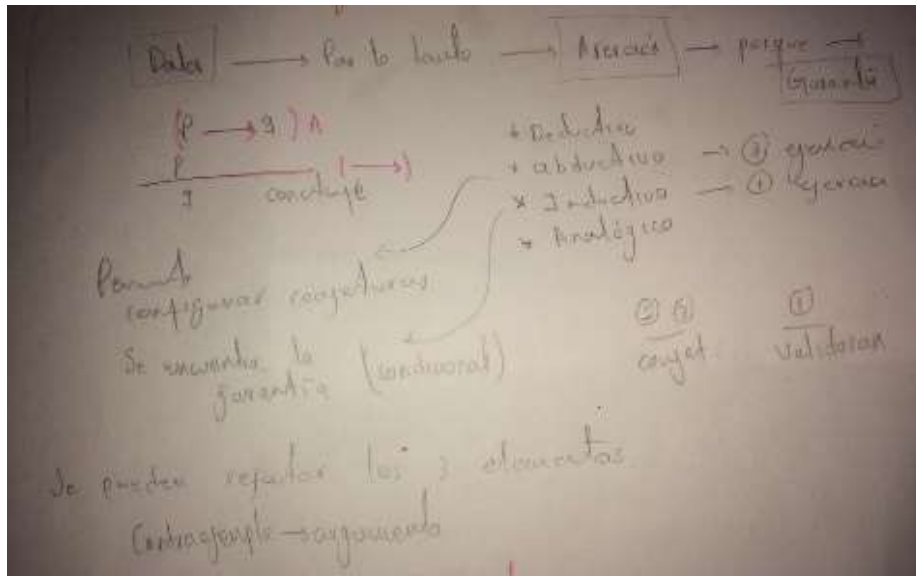 Data → Por lo tanto → Aserción → porque →
Garantía
(P → q) ∧
P
q concluye
* Deductivo
* abductivo →
* Inductivo → ①
* Analógico
Permite
configurar conjeturas
Se encuentra la
garantía (condicional)
conjet. Validaran
Se pueden refutar los 3 elementos
Contraejemplo → argumento